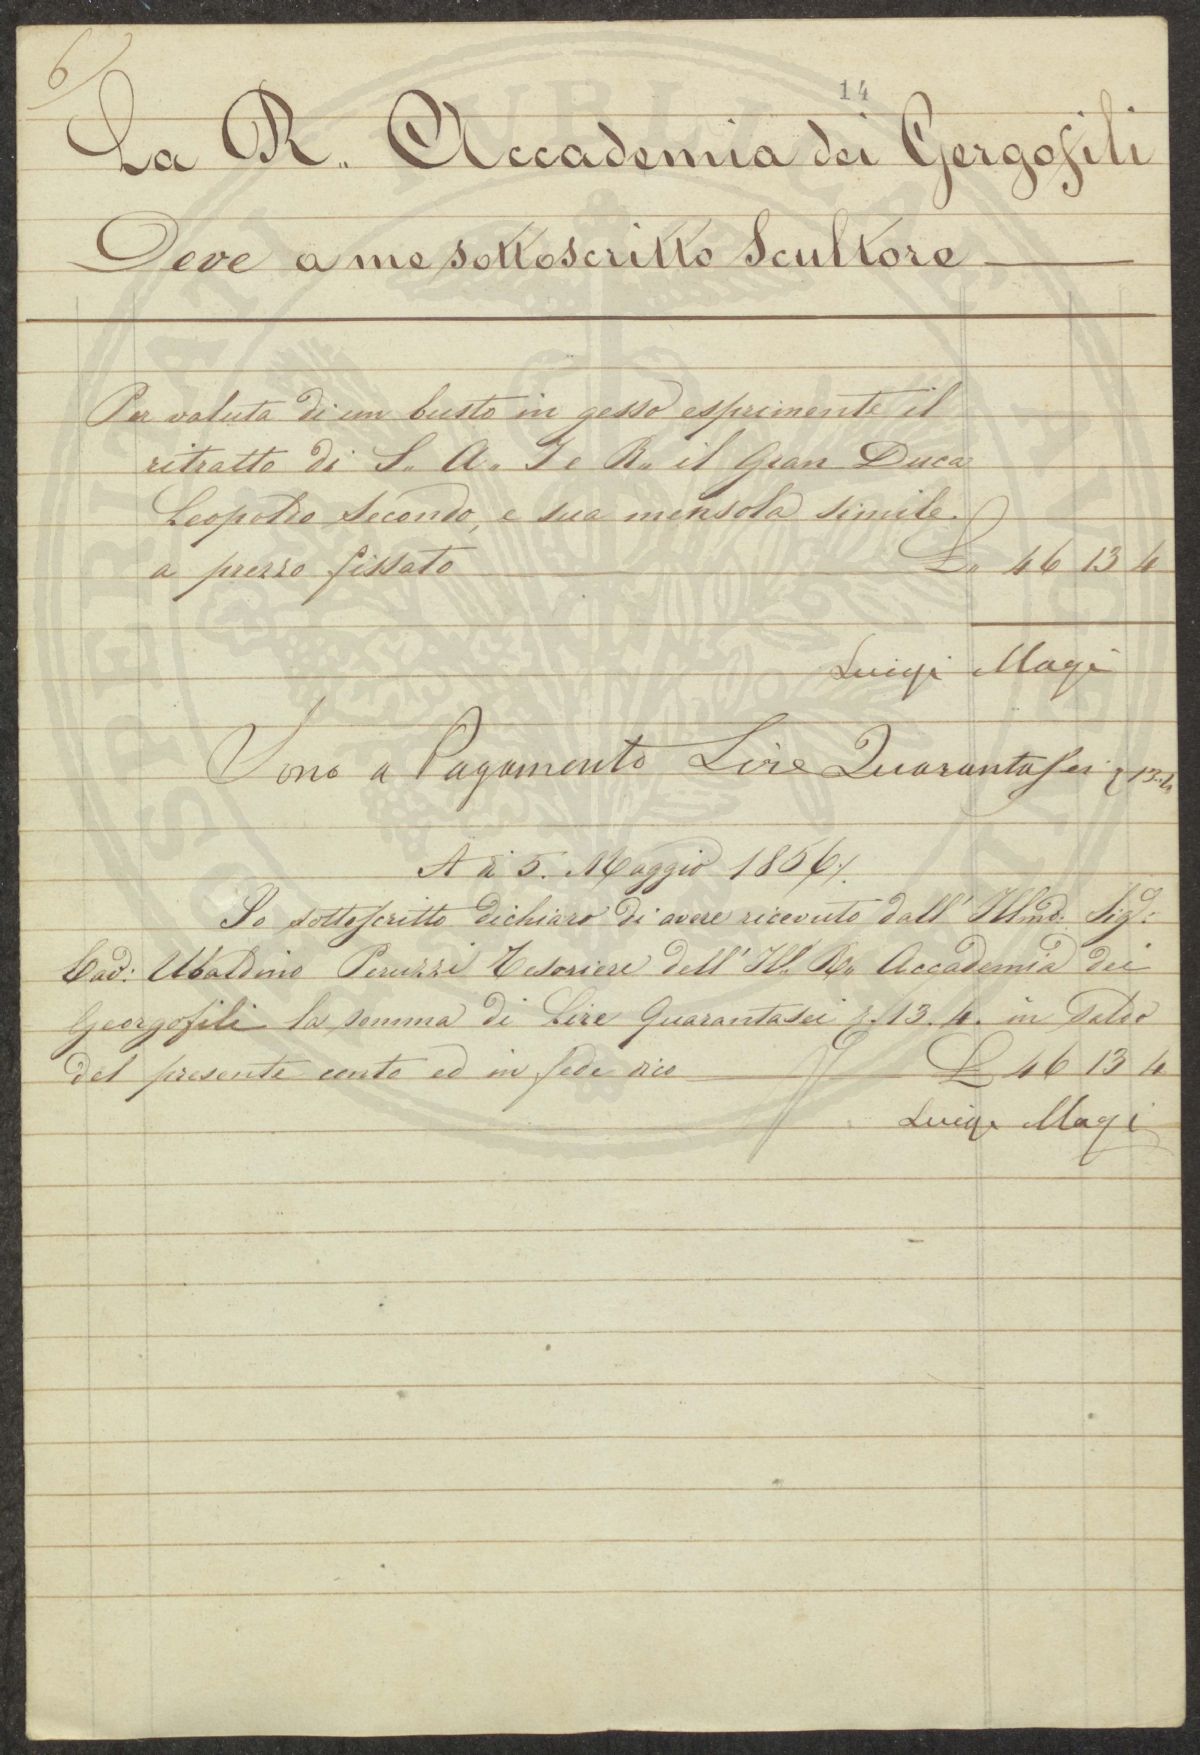 6
14
La R.. Accademia dei Gergofili
Deve a me sottoscritto Scultore
Per valuta di un busto in gesso esprimente il
ritratto di S.. A.. I e R.. il Gran Duca
Leopoldo Secondo, e sua mensola simile.
a prezzo fissato L.. 46 13 4
Luigi Magi
Sono a Pagamento Lire Quarantasei 13.4
A dì 5. Maggio 1856
Io sottoscritto dichiaro di avere ricevuto dall' Illmo. Sigr:
Cav: Ubaldino Peruzzi Tesoriere dell' II. R.. Accademia dei
Georgofili la somma di Lire Quarantasei 13. 4. in Saldo
del presente conto ed in fede dico L 46 13 4
Luigi Magi